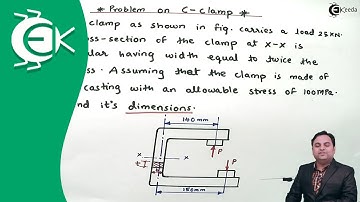 * Problem on C-Clamp *
Ekeeda
clamp as shown in fig. carries a load 25KN.
oss-section of the clamp at X-X is
ular having width equal to twice the
ss. Assuming that the clamp is made of
casting with an allowable stress of 100MPa.
nd it's dimensions.
140mm
x x
t
P P
150mm